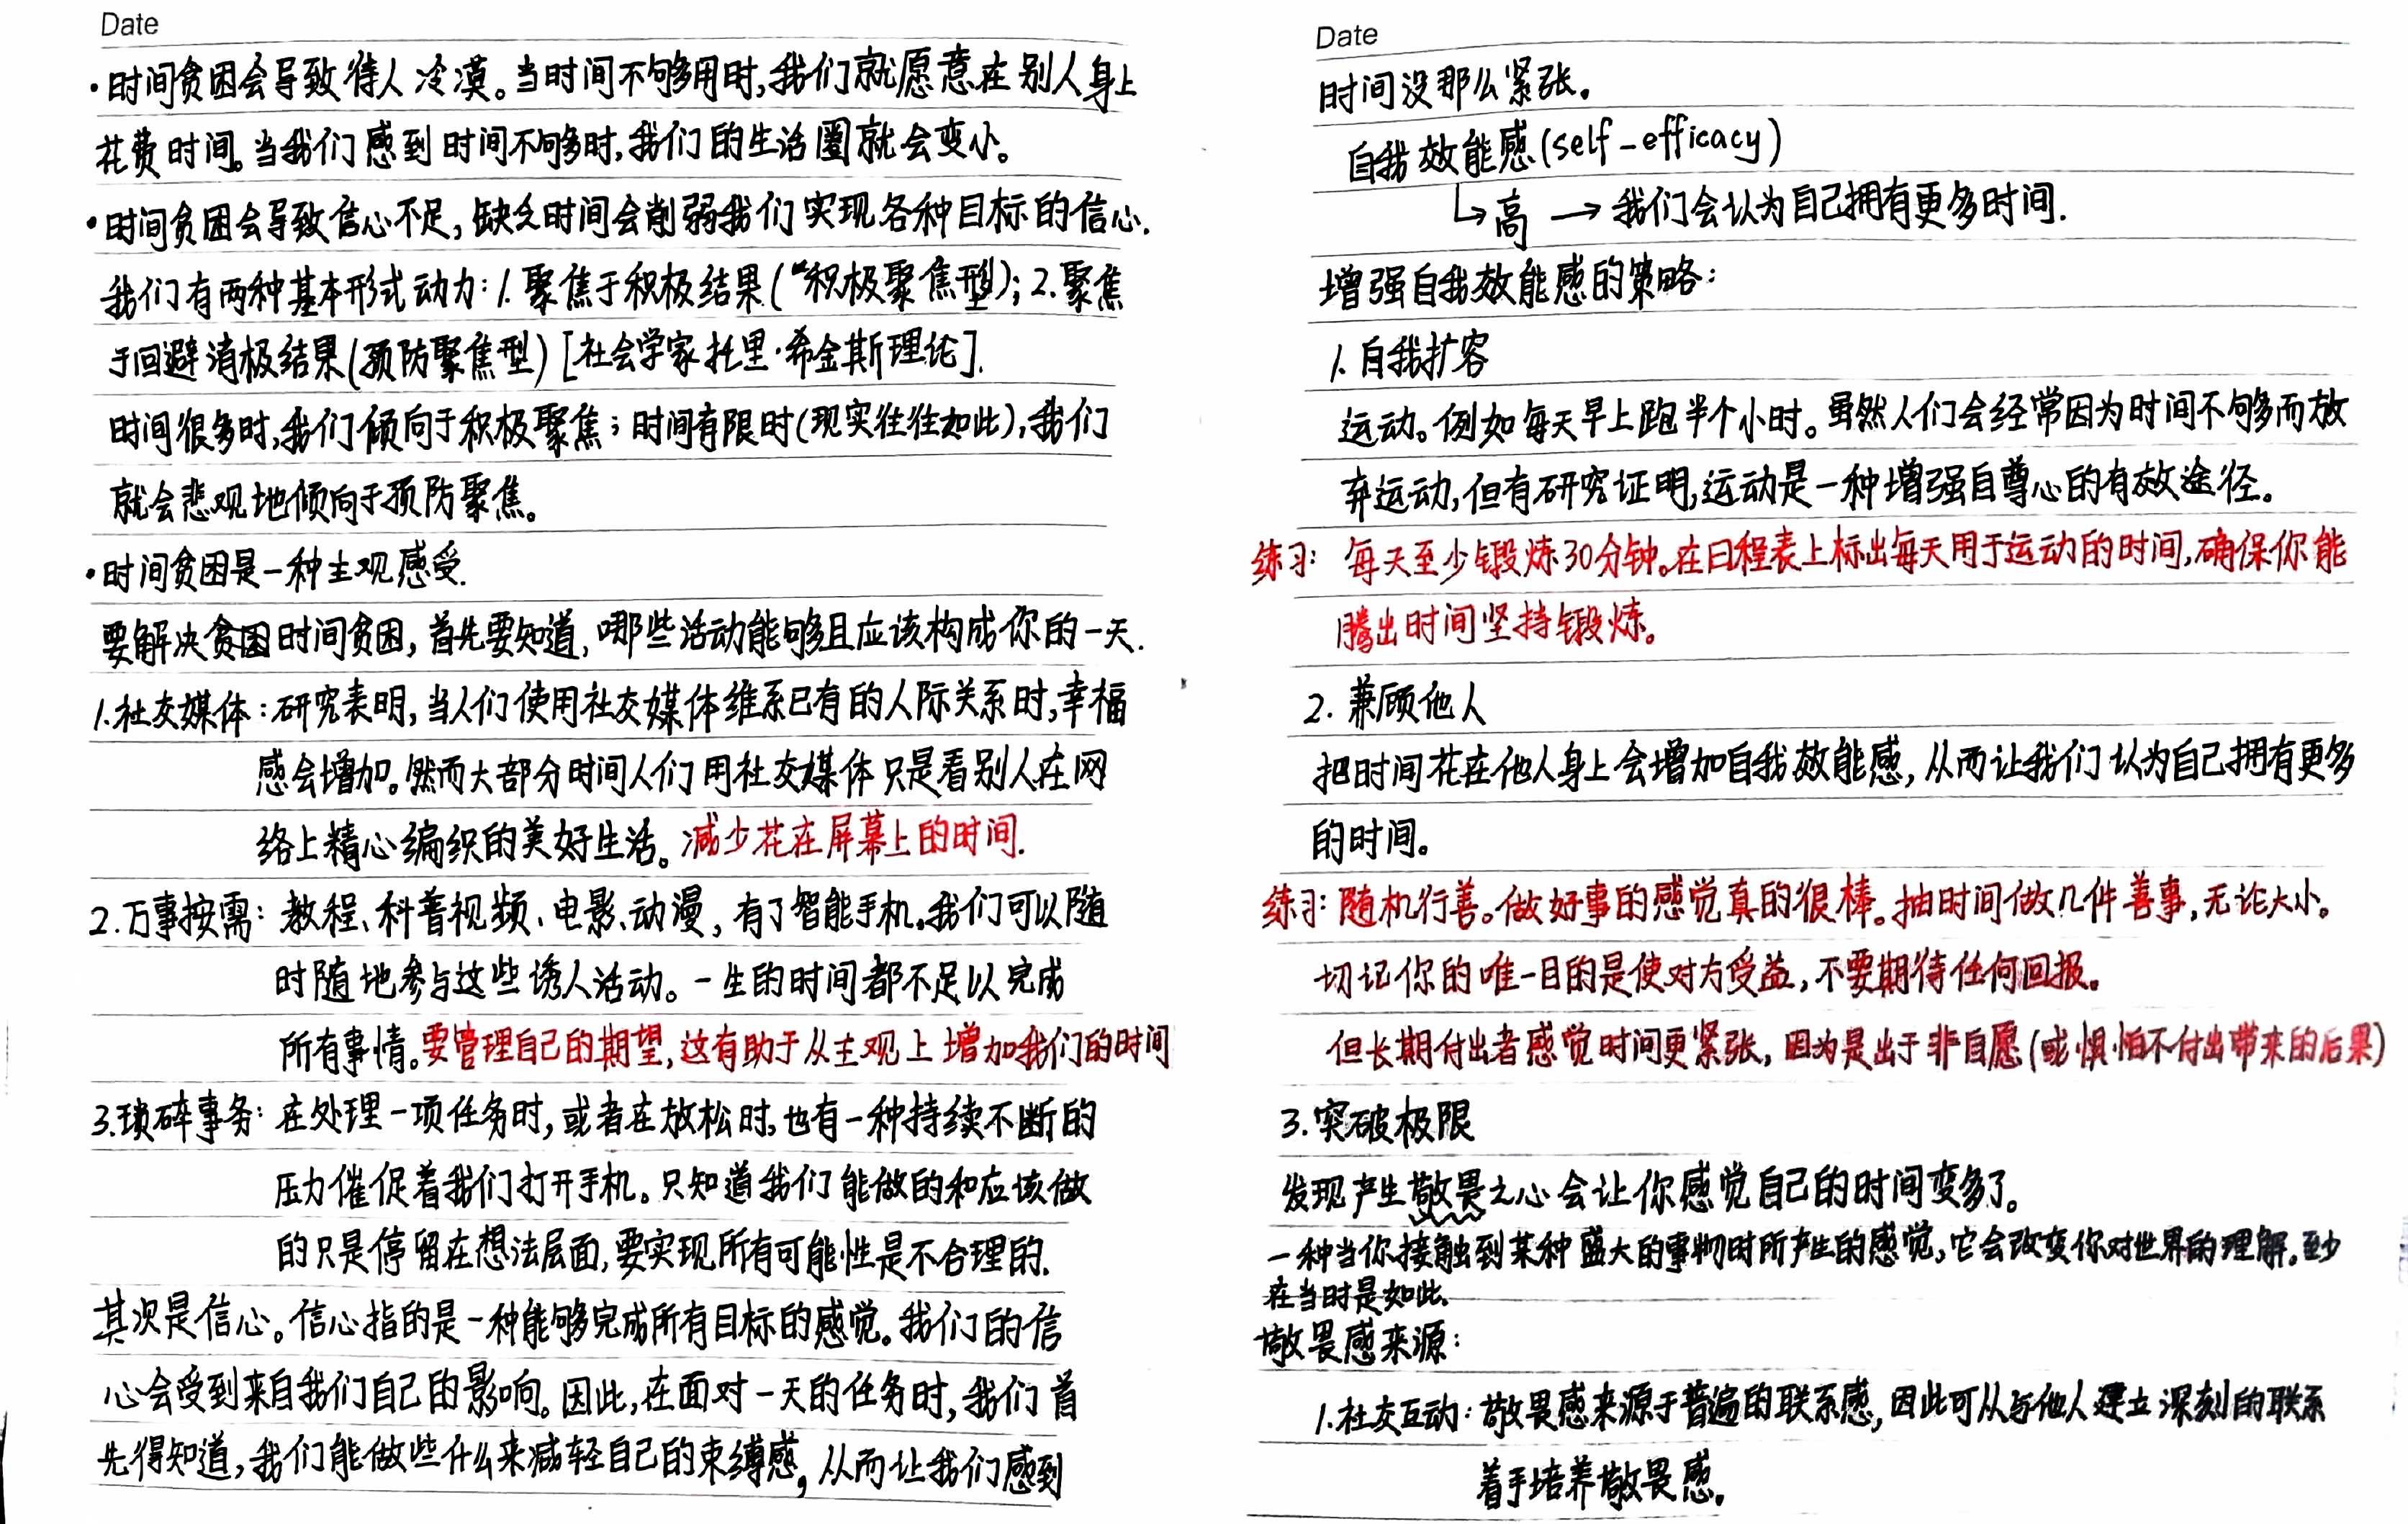 Date
·时间贫困会导致待人冷漠。当时间不够用时,我们就愿意在别人身上
花费时间。当我们感到时间不够时,我们的生活圈就会变小。
·时间贫困会导致信心不足,缺乏时间会削弱我们实现各种目标的信心.
我们有两种基本形式动力:1.聚焦于积极结果(“积极聚焦型);2.聚焦
于回避消极结果(预防聚焦型)[社会学家托里·希金斯理论].
时间很多时,我们倾向于积极聚焦;时间有限时(现实往往如此),我们
就会悲观地倾向于预防聚焦。
·时间贫困是一种主观感受.
要解决贫困时间贫困,首先要知道,哪些活动能够且应该构成你的一天.
1.社交媒体:研究表明,当人们使用社交媒体维系已有的人际关系时,幸福
感会增加。然而大部分时间人们用社交媒体只是看别人在网
络上精心编织的美好生活。减少花在屏幕上的时间.
2.万事按需:教程、科普视频、电影、动漫,有了智能手机,我们可以随
时随地参与这些诱人活动。一生的时间都不足以完成
所有事情。要管理自己的期望,这有助于从主观上增加我们的时间
3.琐碎事务:在处理一项任务时,或者在放松时,也有一种持续不断的
压力催促着我们打开手机。只知道我们能做的和应该做
的只是停留在想法层面,要实现所有可能性是不合理的.
其次是信心。信心指的是一种能够完成所有目标的感觉。我们的信
心会受到来自我们自己的影响。因此,在面对一天的任务时,我们首
先得知道,我们能做些什么来减轻自己的束缚感,从而让我们感到
Date
时间没那么紧张。
自我效能感(self-efficacy)
↳高→我们会认为自己拥有更多时间.
增强自我效能感的策略:
1.自我扩容
运动。例如每天早上跑半个小时。虽然人们会经常因为时间不够而放
弃运动,但有研究证明,运动是一种增强自尊心的有效途径。
练习:每天至少锻炼30分钟。在日程表上标出每天用于运动的时间,确保你能
腾出时间坚持锻炼。
2.兼顾他人
把时间花在他人身上会增加自我效能感,从而让我们认为自己拥有更多
的时间。
练习:随机行善。做好事的感觉真的很棒。抽时间做几件善事,无论大小。
切记你的唯一目的是使对方受益,不要期待任何回报。
但长期付出者感觉时间更紧张,因为是出于非自愿(或惧怕不付出带来的后果)
3.突破极限
发现产生敬畏之心会让你感觉自己的时间变多了。
一种当你接触到某种盛大的事物时所产生的感觉,它会改变你对世界的理解,至少
在当时是如此.
敬畏感来源:
1.社交互动:敬畏感来源于普遍的联系感,因此可从与他人建立深刻的联系
着手培养敬畏感。